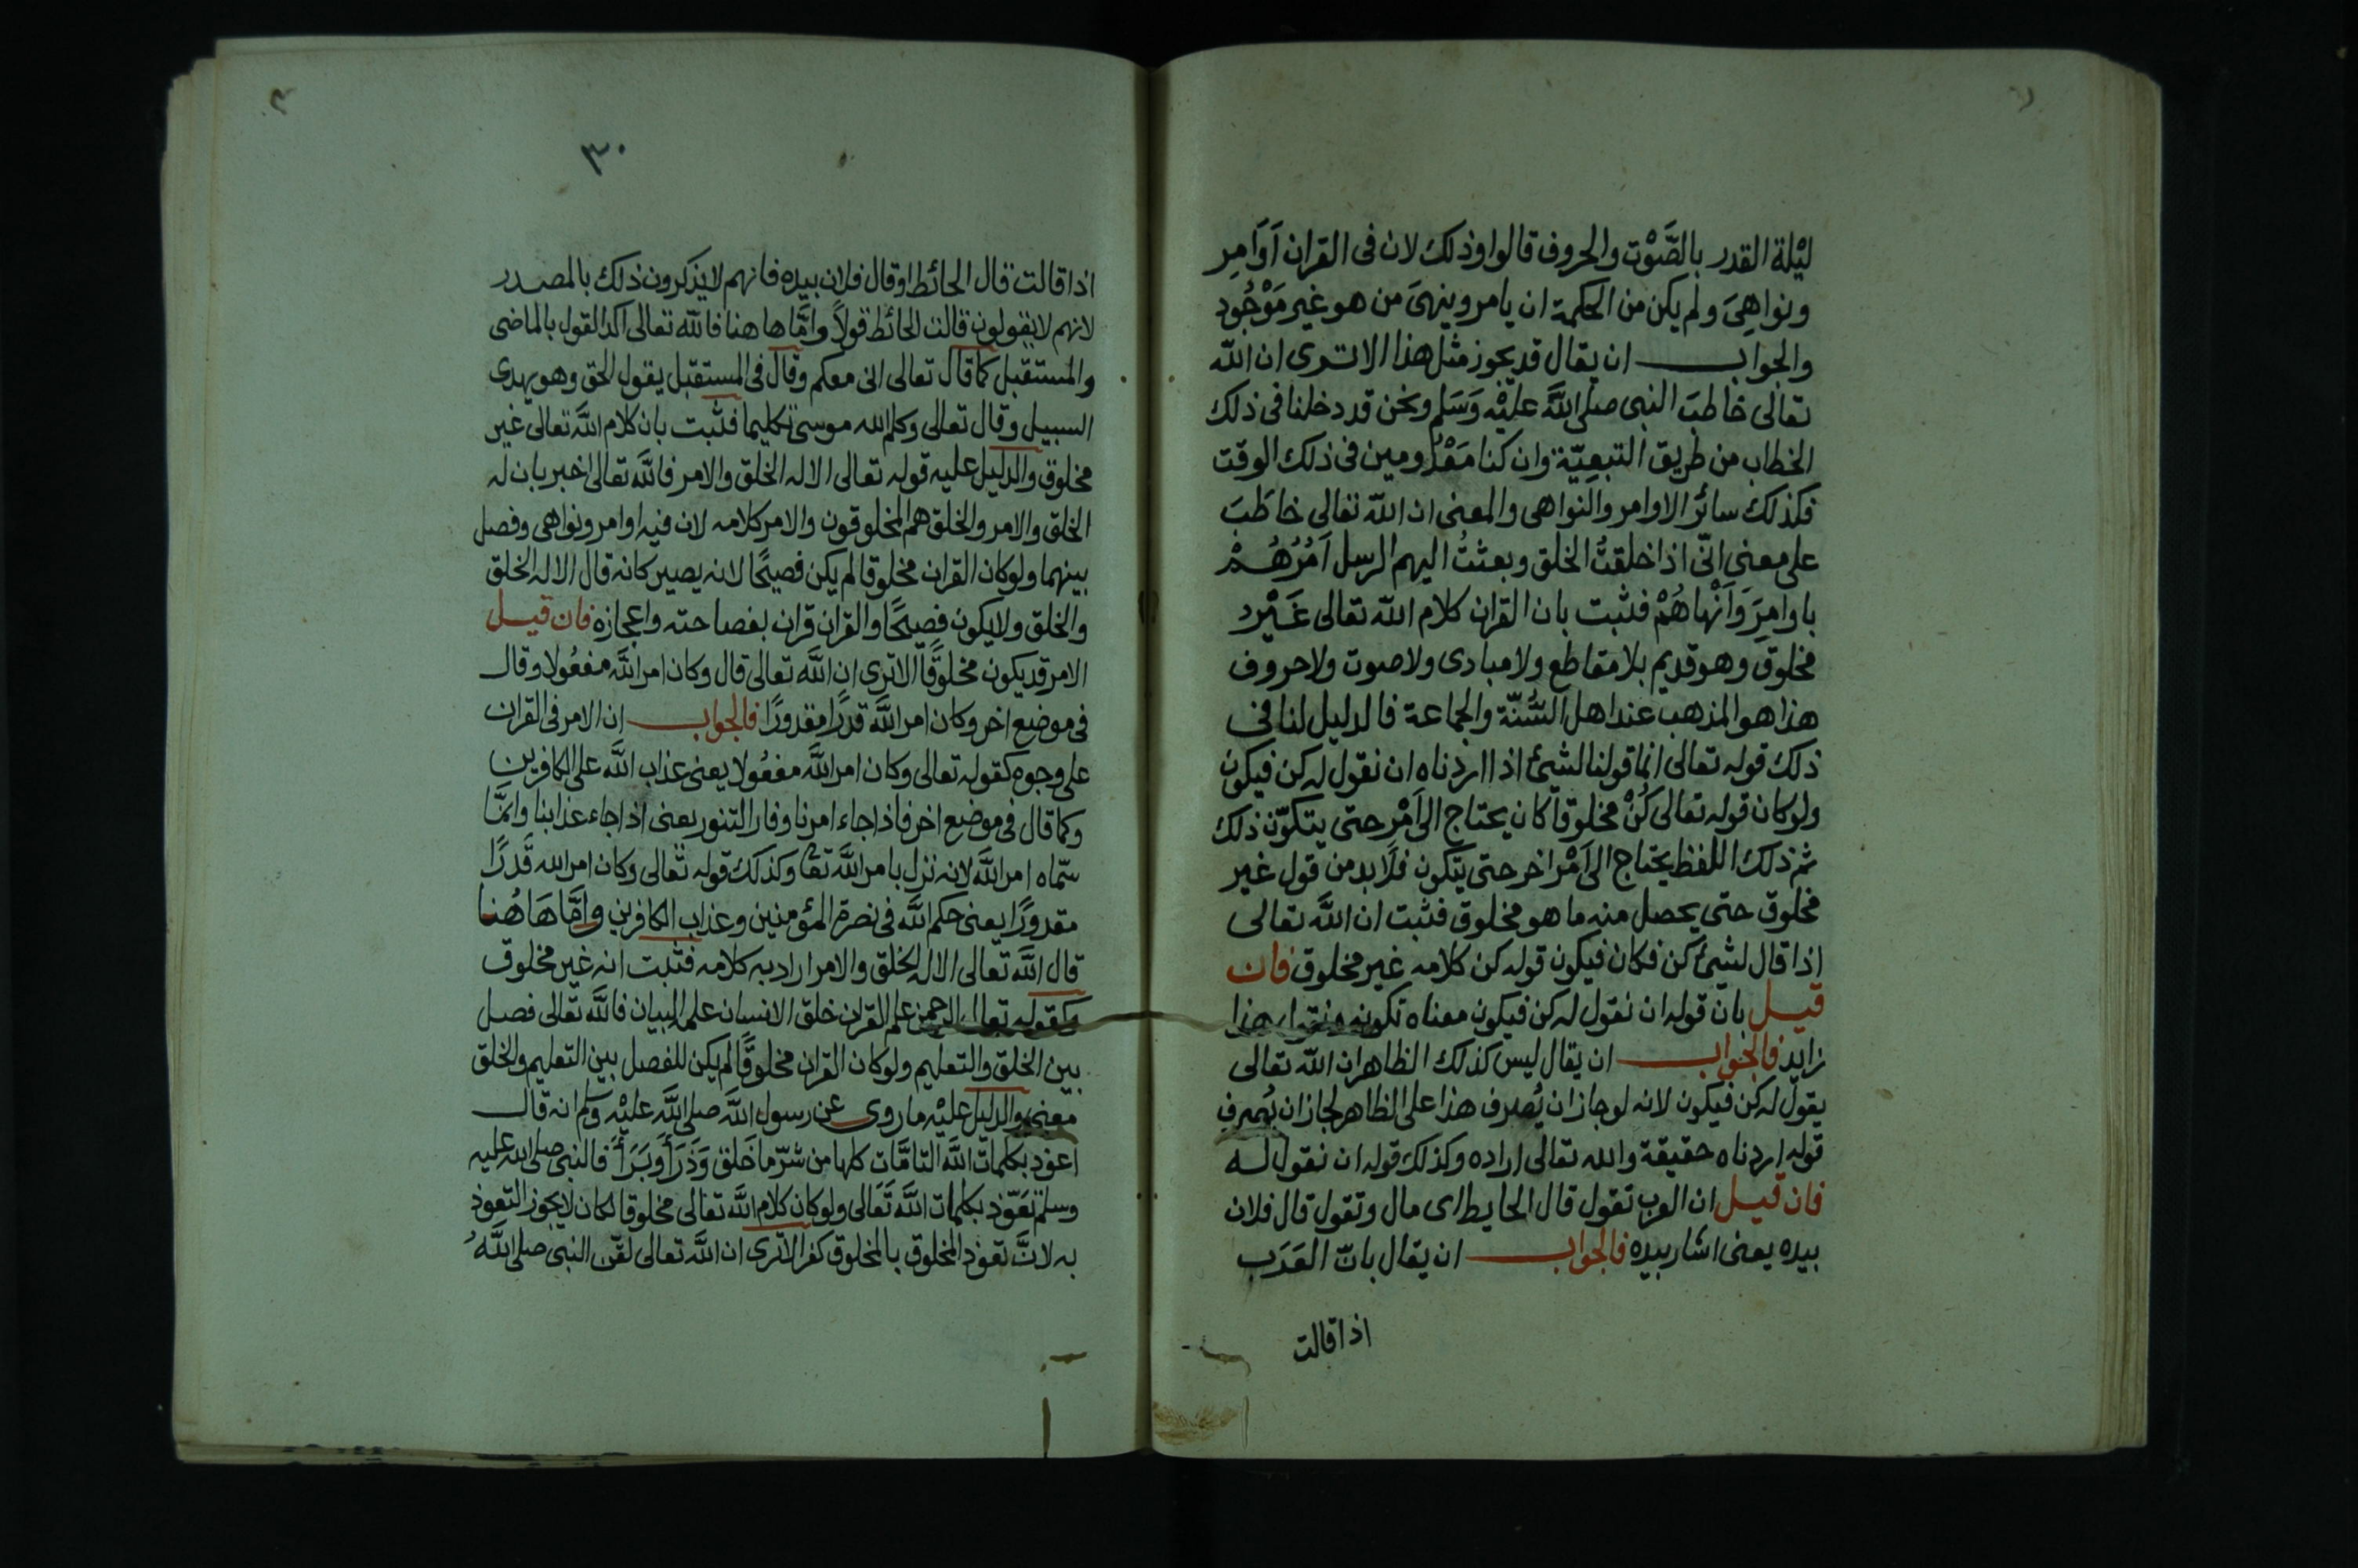 ليْلة القدر بالصَّوْت والحروف قالوا وذلك لان فى القران اَوَامِر
ونواهِىَ ولم يكن من الحكمة ان يامر وينهىَ من هو غير مَوْجُود
والجواب ان يقال قد يجوز مثل هذا الا ترى ان الله
تعالى خاطبَ النبى صلى اللَّه عليْه وَسَلم ونحن قد دخلنا فى ذلك
الخطاب من طريق التبعِيّة وان كنا مَعْدُومين فى ذلك الوقت
فكذلك سائر الاوامر والنواهى والمعنى ان اللّه تعالى خاطَبَ
على معنى انّى اذا خلقتُ الخلق وبعثتُ اليهم الرسل اَمُرُهُمْ
باوامِرَ وَاَنْهاهُمْ فثبت بان القران كلام اللّه تعالى غَيْر
مخلوق وهو قديم بلا مقاطع ولا مبادى ولا صوت ولا حروف
هذا هو المذهب عند اهل السُّنّة والجماعة فالدليل لنا فى
ذلك قوله تعالى انما قولنا لشئ اذا اردناه ان نقول له كن فيكون
ولو كان قوله تعالى كُنْ مخلوقا كان يحتاج الى اَمْر حتى يتكوّن ذلك
ثم ذلك اللفظ يحتاج الى اَمْر اخر حتى يتكون فلا بد من قول غير
مخلوق حتى يحصل منه ما هو مخلوق فثبت ان اللَّه تعالى
اذا قال لشئ كن فكان فيكون قوله كن كلامه غير مخلوق فان
قيل بان قوله ان نقول له كن فيكون معناه تكونه ونقول هذا
زايد فالجواب ان يقال ليس كذلك الظاهر ان اللّه تعالى
يقول له كن فيكون لانه لو جاز ان يُصرف هذا على الظاهر لجاز ان يُصرف
قوله اردناه حقيقة والله تعالى اراده وكذلك قوله ان نقول له
فان قيل ان العرب تقول قال الحايط اى مال وتقول قال فلان
بيده يعنى اشار بيده فالجواب ان يقال بانّ العَرَب
اذا قالت
٣٠
اذا قالت قال الحائط او قال فلان بيده فانهم لا يذكرون ذلك بالمصدر
لانهم لا يقولون قالت الحائط قولاً وامَّا ها هنا فاللّه تعالى اكد القول بالماضى
والمستقبل كما قال تعالى انى معكم وقال فى المستقبل يقول الحق وهو يهدى
السبيل وقال تعالى وكلم الله موسىٰ تكليما فثبت بان كلام اللَّه تعالى غير
مخلوق والدليل عليه قوله تعالى الا له الخلق والامر فاللَّه تعالى اخبر بان له
الخلق والامر والخلق هم المخلوقون والامر كلامه لان فيه اوامر ونواهى وفصل
بينهما ولو كان القران مخلوقا لم يكن فصيحًا لانه يصير كانه قال الا له الخلق
والخلق ولا يكون فصيحًا والقران قران بفصاحته واعجازه فان قيل
الامر قد يكون مخلوقًا الا ترى ان اللَّه تعالى قال وكان امر اللَّه مفعُولا وقال
فى موضع اخر وكان امر اللَّه قدرًا مقدورًا فالجواب ان الامر فى القران
على وجوه كقوله تعالى وكان امر اللَّه مفعُولا يعنى عذاب اللَّه على الكافرين
وكما قال فى موضع اخر فاذا جاء امرنا وفار التنور يعنى اذا جاء عذابنا وانمَّا
سمّاه امر اللَّه لانه نزل بامر اللَّه تعا وكذلك قوله تعالى وكان امر الله قَدرًا
مقدورًا يعنى حكم اللَّه فى نصرة المؤمنين وعذاب الكافرين وامَّا هَا هُنا
قال اللَّه تعالى الا له الخلق والامر اراد به كلامه فثبت انه غير مخلوق
وكقوله تعالى الرحمن علم القران خلق الانسان علمه البيان فاللَّه تعالى فصل
بين الخلق والتعليم ولو كان القران مخلوقًا لم يكن للفصل بين التعليم والخلق
معنى والدليل عليْه ما روى عن رسول اللَّه صلى اللَّه عليْه وسلم انه قال
اعوذ بكلمات اللَّه التامَّات كلها من شرّ ما خَلق وَذَرَأ وَبَرَأَ فالنبى صلى الله عليه
وسلم تعَوّذ بكلمات اللَّه تَعَالى ولو كان كلام اللَّه تعالى مخلوقا لكان لا يجوز التعوذ
به لانَّ تعوذ المخلوق بالمخلوق كفر الا ترى ان اللَّه تعالى لقّن النبى صلى اللَّهُ